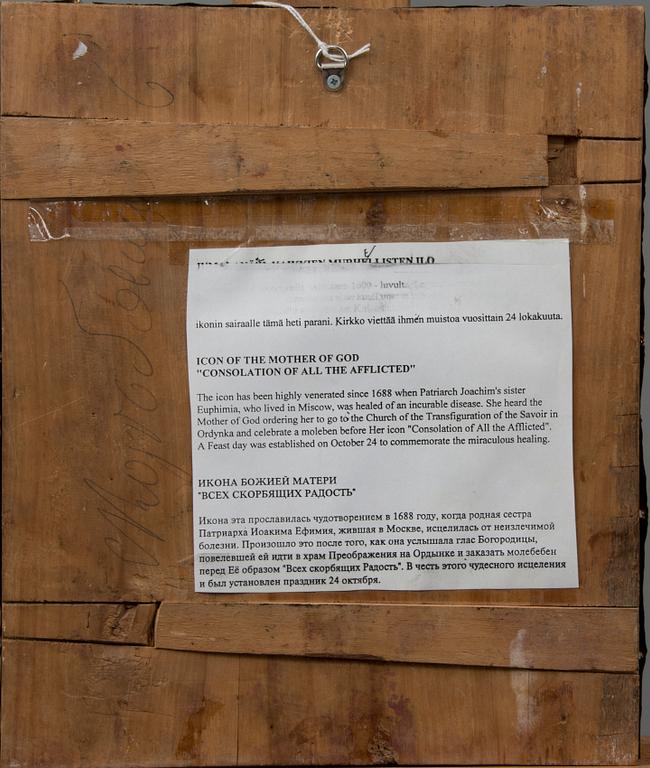 LISTEN ILO
1600 - luvult
ikonin sairaalle tämä heti parani. Kirkko viettää ihmen muistoa vuosittain 24 lokakuuta.
ICON OF THE MOTHER OF GOD
"CONSOLATION OF ALL THE AFFLICTED"
The icon has been highly venerated since 1688 when Patriarch Joachim's sister
Euphimia, who lived in Miscow, was healed of an incurable disease. She heard the
Mother of God ordering her to go to the Church of the Transfiguration of the Savoir in
Ordynka and celebrate a moleben before Her icon "Consolation of All the Afflicted".
A Feast day was established on October 24 to commemorate the miraculous healing.
ИКОНА БОЖИЕЙ МАТЕРИ
"ВСЕХ СКОРБЯЩИХ РАДОСТЬ"
Икона эта прославилась чудотворением в 1688 году, когда родная сестра
Патриарха Иоакима Ефимия, жившая в Москве, исцелилась от неизлечимой
болезни. Произошло это после того, как она услышала глас Богородицы,
повелевшей ей идти в храм Преображения на Ордынке и заказать молебебен
перед Её образом "Всех скорбящих Радость". В честь этого чудесного исцеления
и был установлен праздник 24 октября.